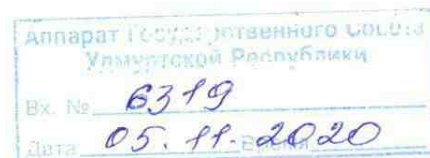 Аппарат Государственного Совета
Удмуртской Республики
Вх. № 6319
Дата 05.11.2020 Время